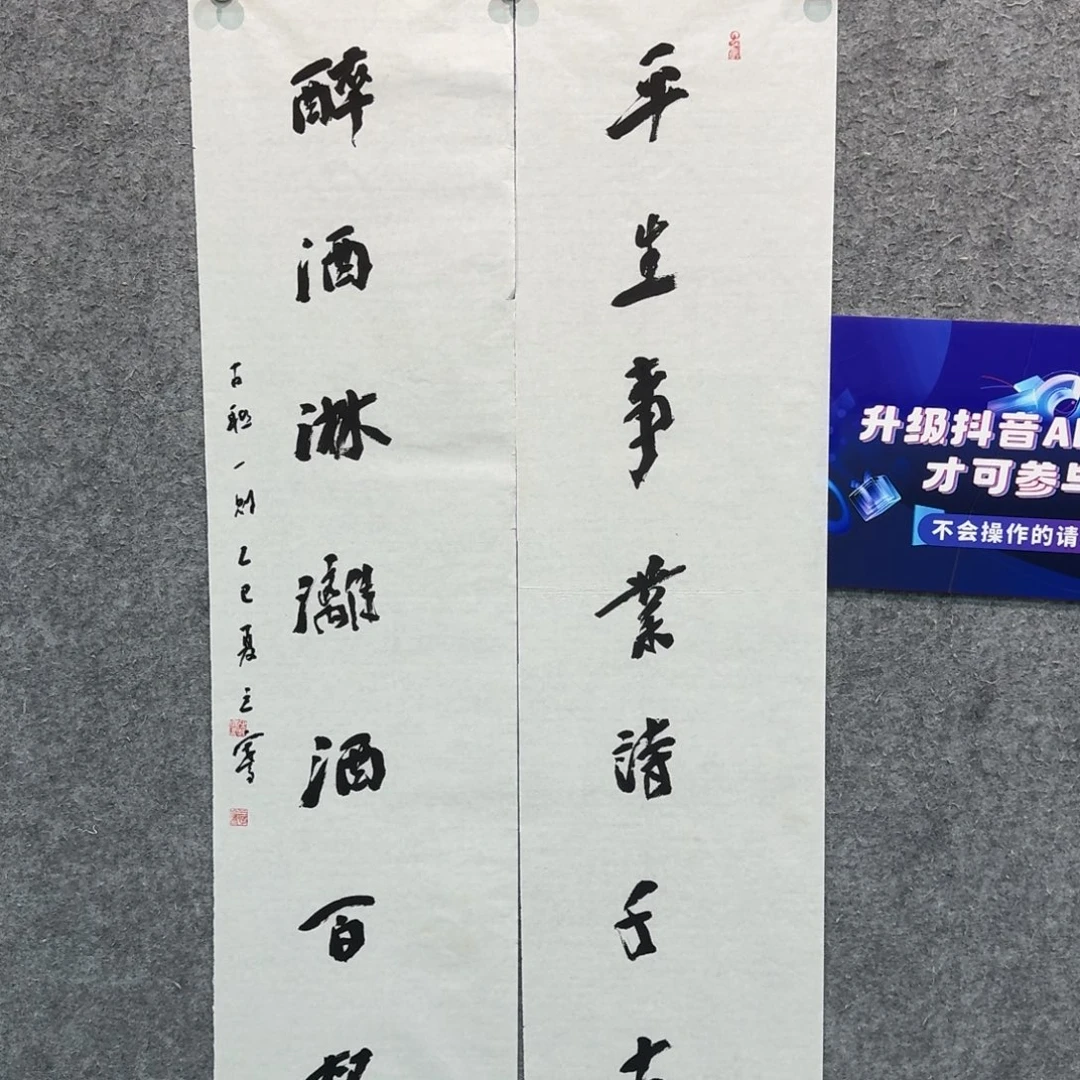 平生事業詩千
醉酒淋灕酒百
一則乙巳夏立寫
升级抖音A
才可参与
不会操作的请